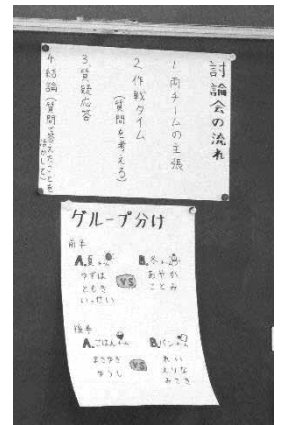 討論会の流れ
1 両チームの主張
2.作戦タイム
(質問を考える)
3.質疑応答
4.結論(質問で答えたことを
グループ分け
前半
A.夏チーム
ゆずは
ともき
いっせい
VS
B.冬チーム
あやか
ことみ
後半
A.ごはんチーム
まさゆき
ゆうし
VS
B.パンチーム
れい
えりな
みさき